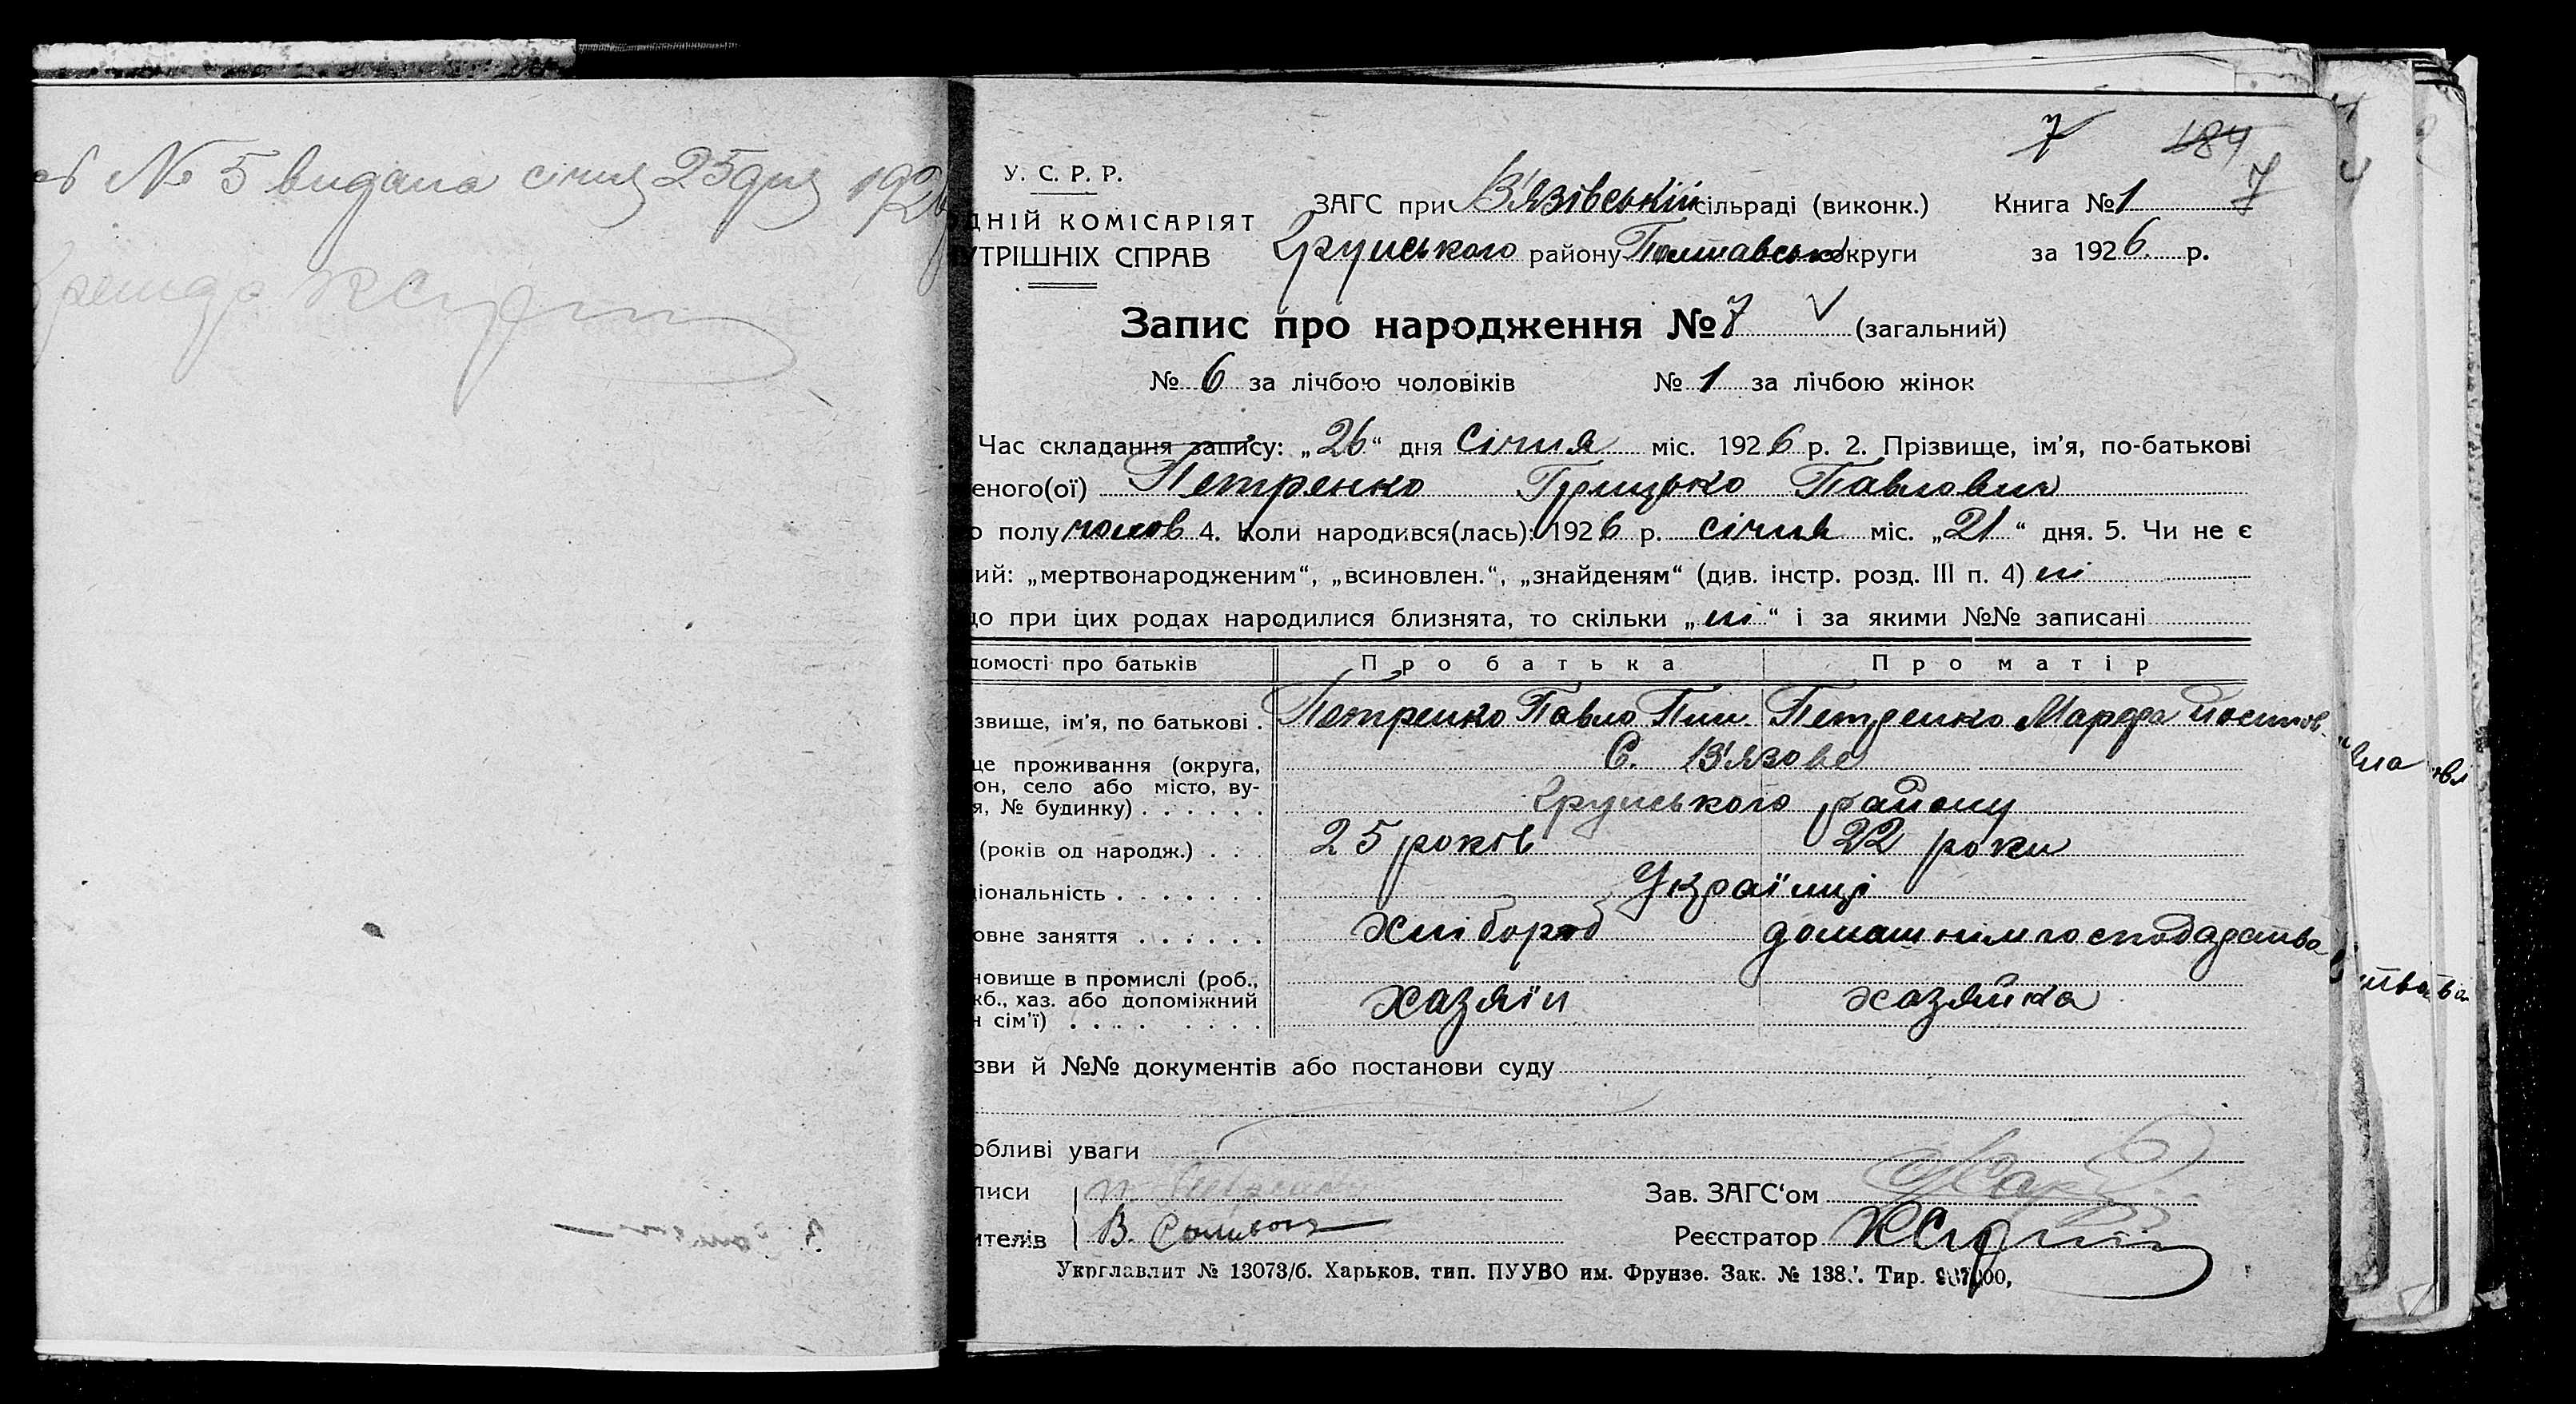 № 5 видана січня 25 дня 192
У. С. Р. Р.
ДНІЙ КОМІСАРІЯТ
УТРІШНІХ СПРАВ
7 184
7
ЗАГС при В'язівській сільраді (виконк.) Книга № 1
Грунського району Полтавсько округи за 1926. р.
Запис про народження № 7 V (загальний)
№ 6 за лічбою чоловіків № 1 за лічбою жінок
Час складання запису: „26“ дня січня міс. 1926 р. 2. Прізвище, ім'я, по-батькові
еного(ої) Петренко Грицько Павлович
о полу чолов 4. Коли народився(лась): 1926 р. січня міс. „21“ дня. 5. Чи не є
ий: „мертвонародженим“, „всиновлен.“, „знайденям“ (див. інстр. розд. III п. 4) ні
до при цих родах народилися близнята, то скільки „ні“ і за якими №№ записані
домості про батьків Про батька Про матір
звище, ім'я, по батькові . Петренко Павло Пил Петренко Марфа Йосипов.
це проживання (округа, С. В'язове
он, село або місто, ву-
я, № будинку) . . . . . . Грунського району
(років од народж.) . . . 25 років 22 роки
ціональність . . . . . . . Українці
овне заняття . . . . . . хлібороб домашним господарства
новище в промислі (роб.,
кб., хаз. або допоміжний хазяїн хазяйка
н сім'ї) . . . . . . . .
зви й №№ документів або постанови суду
обливі уваги
писи П. Петренко Зав. ЗАГС‘ом
ителів В. Реєстратор
Укрглавлит № 13073/б. Харьков. тип. ПУУВО им. Фрунзе. Зак. № 138 Тир.